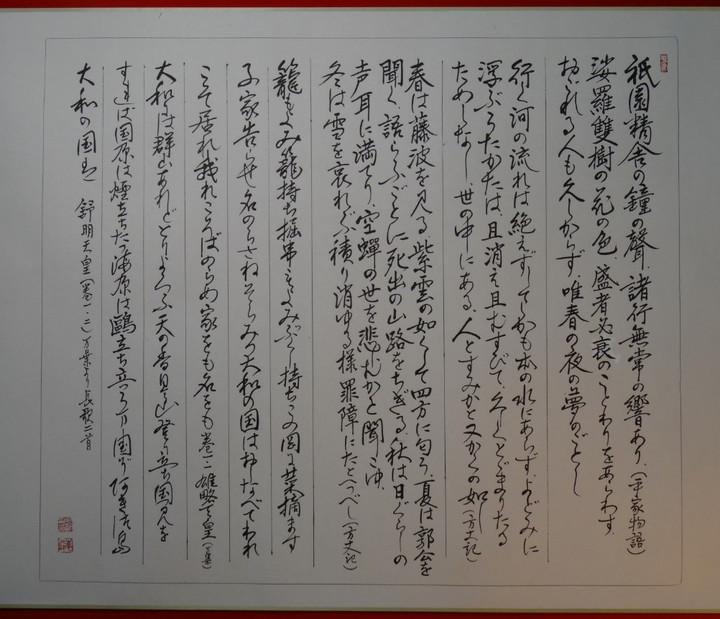 祇園精舎の鐘の聲、諸行無常の響あり、(平家物語)
娑羅雙樹の花の色、盛者必衰のことわりをあらわす、
おごれる人も久しからず、唯春の夜の夢のごとし
行く河の流れは絶えずしてしかも本の水にあらず、よどみに
浮ぶうたかたは、且消え且むすびて、久しくとどまりたる
ためしなし、世の中にある、人とすみかと又かくの如し(方丈記)
春は藤波を見る、紫雲の如くして四方に匂う、夏は郭公を
聞く、語らふごとに死出の山路をちぎる、秋は日ぐらしの
声耳に満てり、空蟬の世を悲むかと聞こゆ、
冬は雪を哀れぶ、積り消ゆる様罪障にたとへつべし(方丈記)
籠もよみ籠持ち掘串もよみぶくし持ちこの岡に菜摘ます
子家告らせ名のらさねそらみつ大和の国はおしなべてわれ
こそ居れ我れこそばのらめ家をも名をも 巻一 雄略天皇
大和には群山あれどとりよろふ天の香具山登り立ち国見を
すれば国原は煙立ちたつ海原は鷗立ち立つうまし国ぞ
大和の国は 舒明天皇(巻一・二)万葉より長歌二首